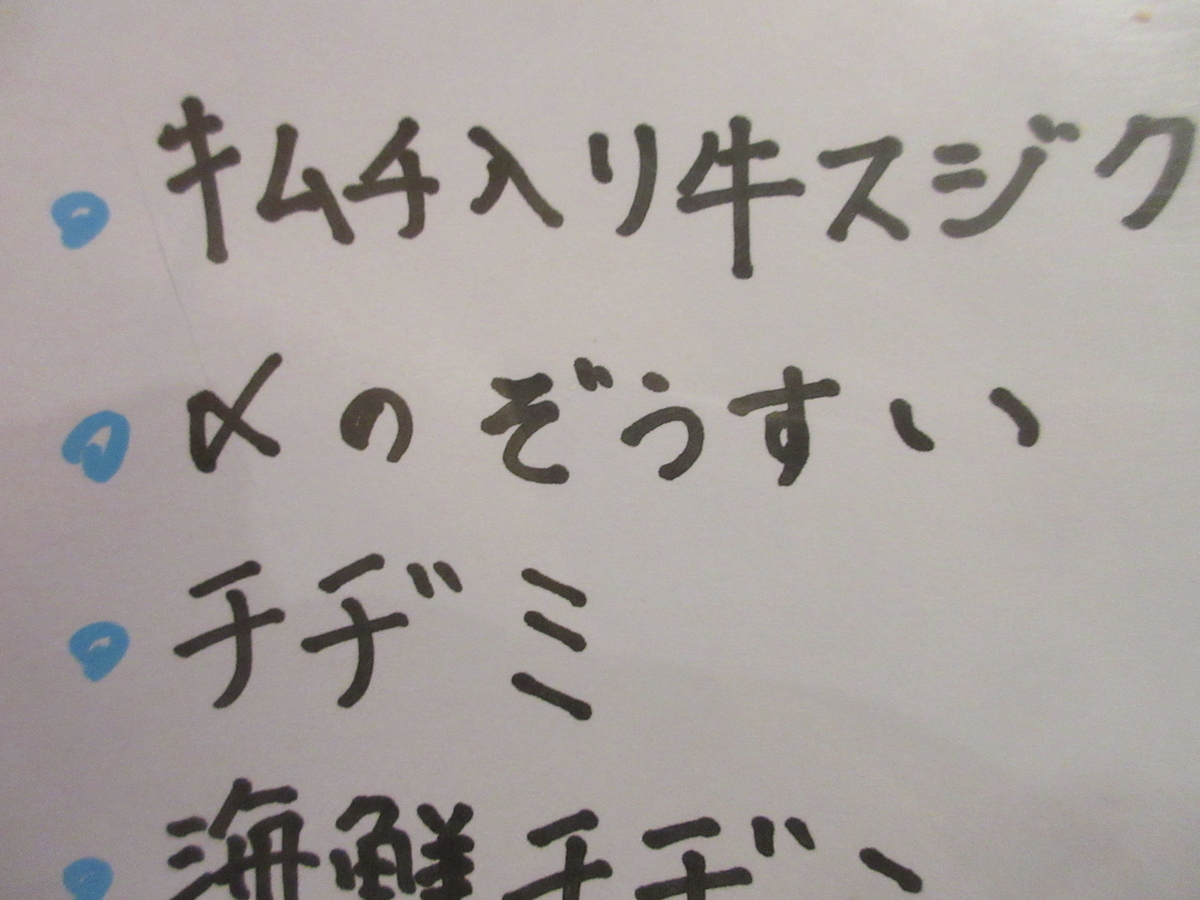 キムチ入り牛スジク
〆のぞうすい
チヂミ
海鮮チヂ